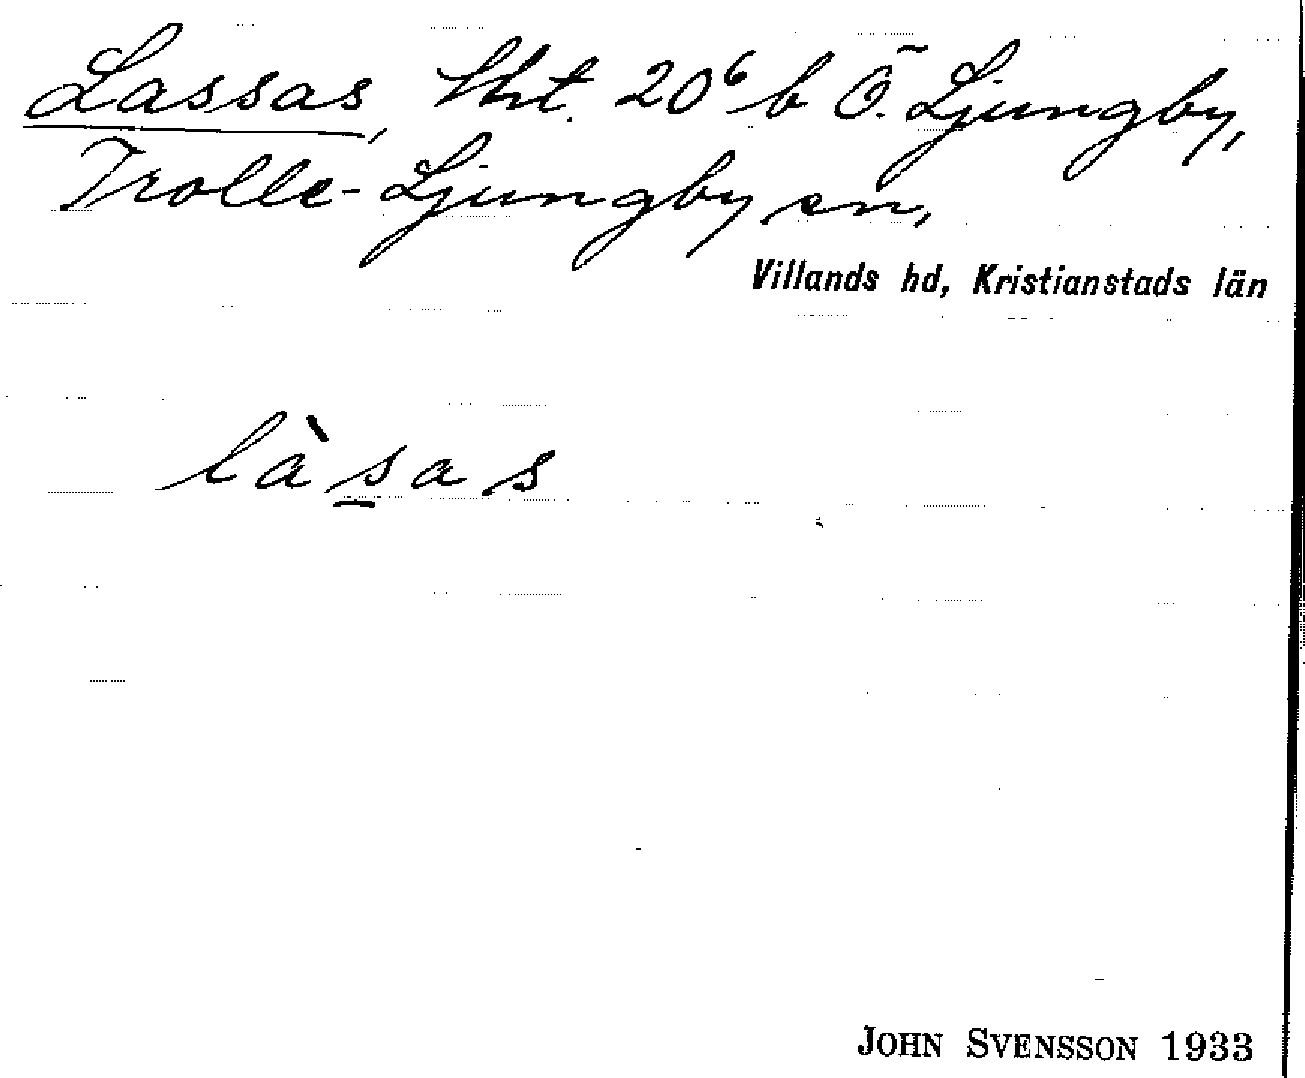 Lassas, lht. 20⁶ b Ö. Ljungby,
Trolle-Ljungby sn,
Villands hd, Kristianstads län
làs̲as
JOHN SVENSSON 1933